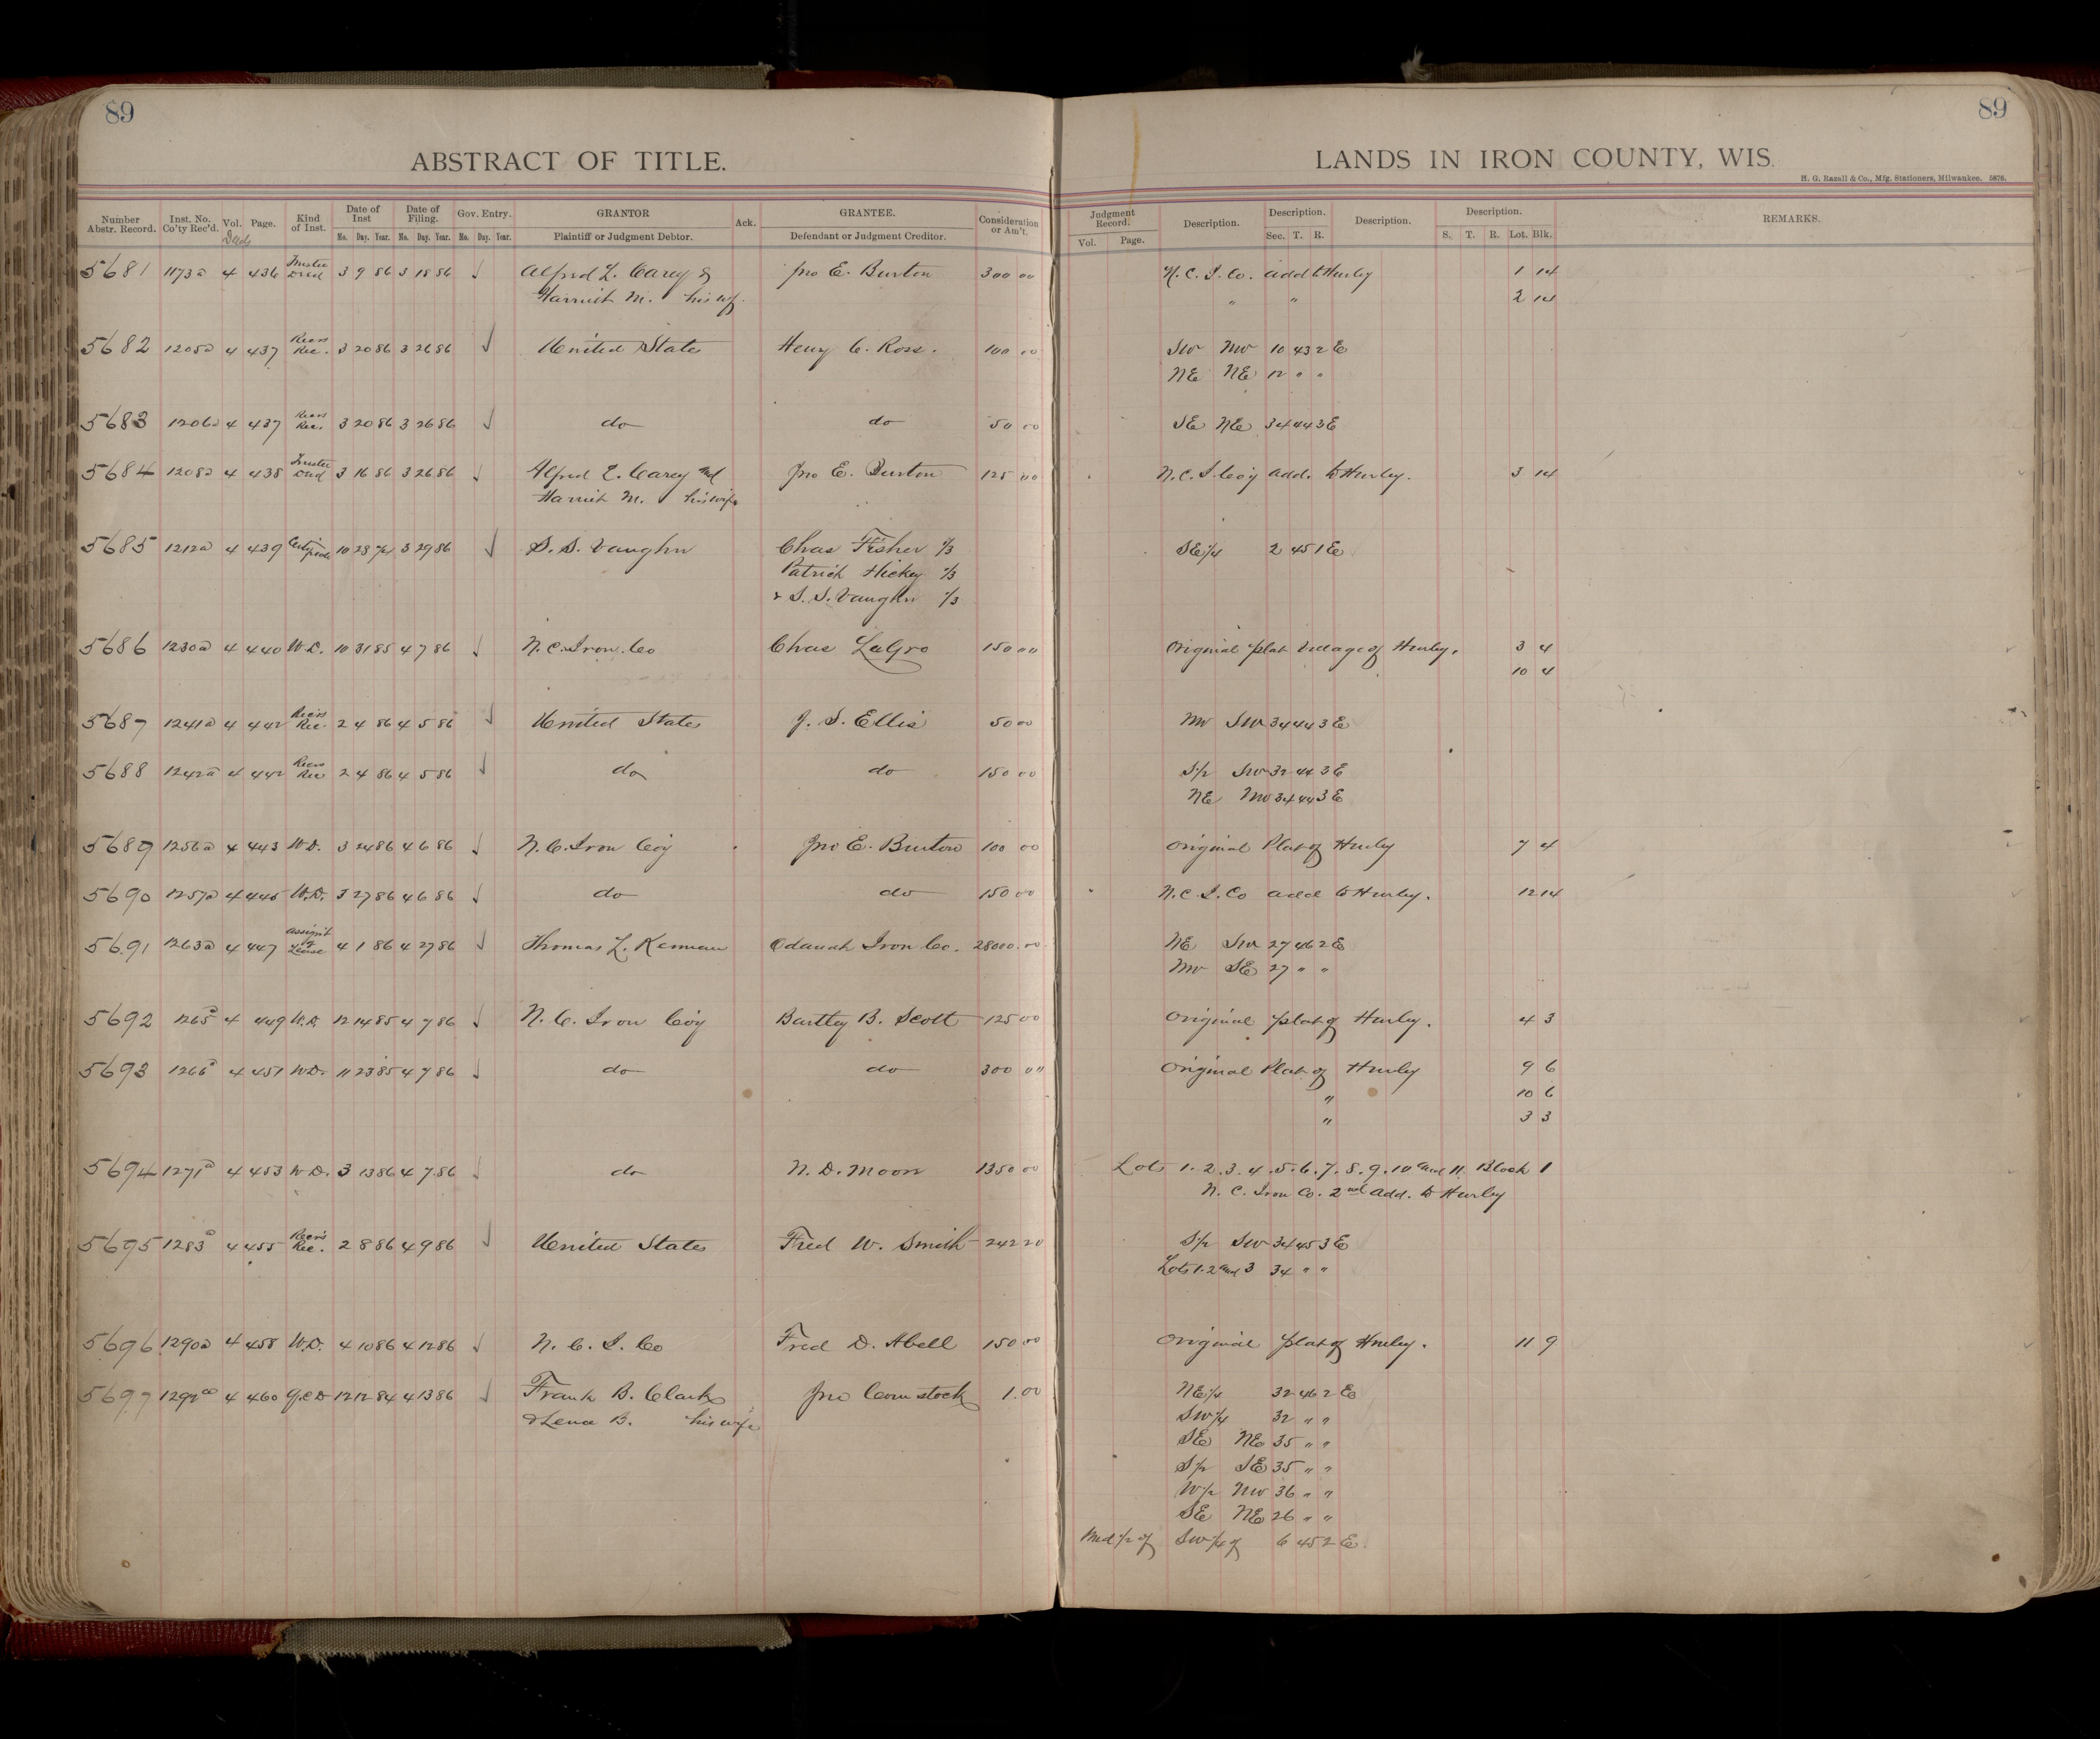 89
89
ABSTRACT OF TITLE.
LANDS IN IRON COUNTY, WIS.
H. G. Razall & Co., Mfg. Stationers, Milwaukee. 5876.
Number Abstr. Record. Inst. No. Co'ty Rec'd. Vol. Page. Kind of Inst. Date of Inst Date of Filing. Gov. Entry. GRANTOR Ack. GRANTEE. Consideration or Am't. Judgment Record. Description. Description. Description. Description. REMARKS.
Deeds Mo. Day. Year. Mo. Day. Year. Mo. Day. Year. Plaintiff or Judgment Debtor. Defendant or Judgment Creditor. Vol. Page. Sec. T. R. S. T. R. Lot. Blk.
5681 1173a 4 436 Trustee Deed 3 9 86 3 18 86 √ Alfred L. Carey & Jno E. Burton 300 00 N. C. I. Co. add to Hurley 1 14
Harriet M. his wf. " " 2 14
5682 1205a 4 437 Recrs Rec. 3 20 86 3 26 86 √ United States Henry C. Ross. 100 00 SW NW 10 43 2 E
NE NE 12 " "
5683 1206a 4 437 Recrs Rec. 3 20 86 3 26 86 √ do do 50 00 SE NE 34 44 3 E
5684 1208a 4 438 Trustee Deed 3 16 86 3 26 86 √ Alfred L. Carey and Jno E. Burton 125 00 N. C. I. Co'y add. to Hurley. 3 14
Harriet M. his wife
5685 1212a 4 439 10 28 3 29 86 √ S. S. Vaughn Chas Fisher 1/3 SE 1/4 2 45 1 E
Patrick Hickey 1/3
& S. S. Vaughn 1/3
5686 1230a 4 440 W.D. 10 31 85 4 7 86 √ N. C. Iron. Co Chas LaGro 150 00 Original plat Village of Hurley. 3 4
10 4
5687 1241a 4 442 Recrs Rec. 2 4 86 4 5 86 √ United States J. S. Ellis 50 00 NW SW 34 44 3 E
5688 1242a 4 442 Recrs Rec 2 4 86 4 5 86 √ do do 150 00 S 1/2 SW 32 44 3 E
NE NW 34 44 3 E
5689 1256a 4 443 W.D. 3 24 86 4 6 86 √ N. C. Iron Co'y Jno E. Burton 100 00 Original Plat of Hurley 7 4
5690 1257a 4 445 W.D. 3 27 86 4 6 86 √ do do 150 00 N. C. I. Co add to Hurley. 12 14
5691 1263a 4 447 Assign't of Lease 4 1 86 4 27 86 √ Thomas L. Odanah Iron Co. 28000.00 NE SW 27 46 2 E
NW SE 27 " "
5692 1265a 4 449 W.D. 12 14 85 4 7 86 √ N. C. Iron Co'y Bartley B. Scott 125 00 Original plat of Hurley. 4 3
5693 1266a 4 451 W.D. 11 23 85 4 7 86 √ do do 300 00 Original Plat of Hurley 9 6
" 10 6
" 3 3
5694 1271a 4 453 W.D. 3 13 86 4 7 86 √ do N. D. Moon 1350 00 Lots 1. 2. 3. 4. 5. 6. 7. 8. 9. 10 and 11. Block 1
N. C. Iron Co. 2nd Add. to Hurley
5695 1283a 4 455 Recrs Rec. 2 8 86 4 9 86 √ United States Fred W. Smith 242 20 S 1/2 SW 34 45 3 E
Lots 1. 2 and 3 34 " "
5696 1290a 4 458 W.D. 4 10 86 4 12 86 √ N. C. I. Co Fred D. Abell 150 00 Original plat of Hurley. 11 9
5697 4 460 Q.C.D 12 12 84 4 13 86 √ Frank B. Clark Jno Comstock 1.00 NE 1/4 32 46 2 E
& Lena B. his wife SW 1/4 32 " "
SE NE 35 " "
S 1/2 SE 35 " "
W 1/2 NW 36 " "
SE NE 26 " "
Und 1/2 of SW 1/4 of 6 45 2 E